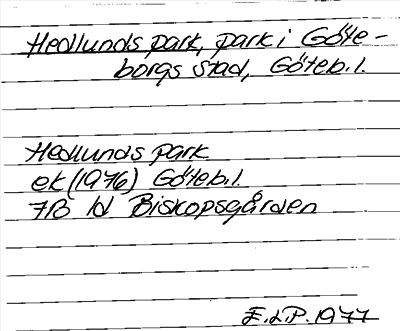 Hedlunds park, park i Göte-
borgs stad, Göteb. l.
Hedlunds park
ek (1976) Göteb. l.
7B Id Biskopsgården
E.LP. 1977